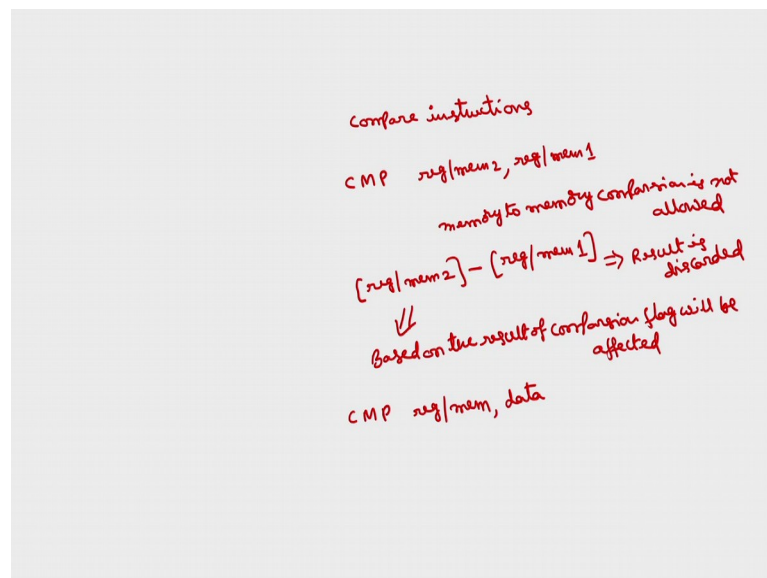 compare instructions
CMP reg/mem2, reg/mem1
memory to memory comparsion is not
allowed
[reg/mem2] - [reg/mem1] ⇒ Result is
discarded
⇓
Based on the result of comparsion flag will be
affected
CMP reg/mem, data